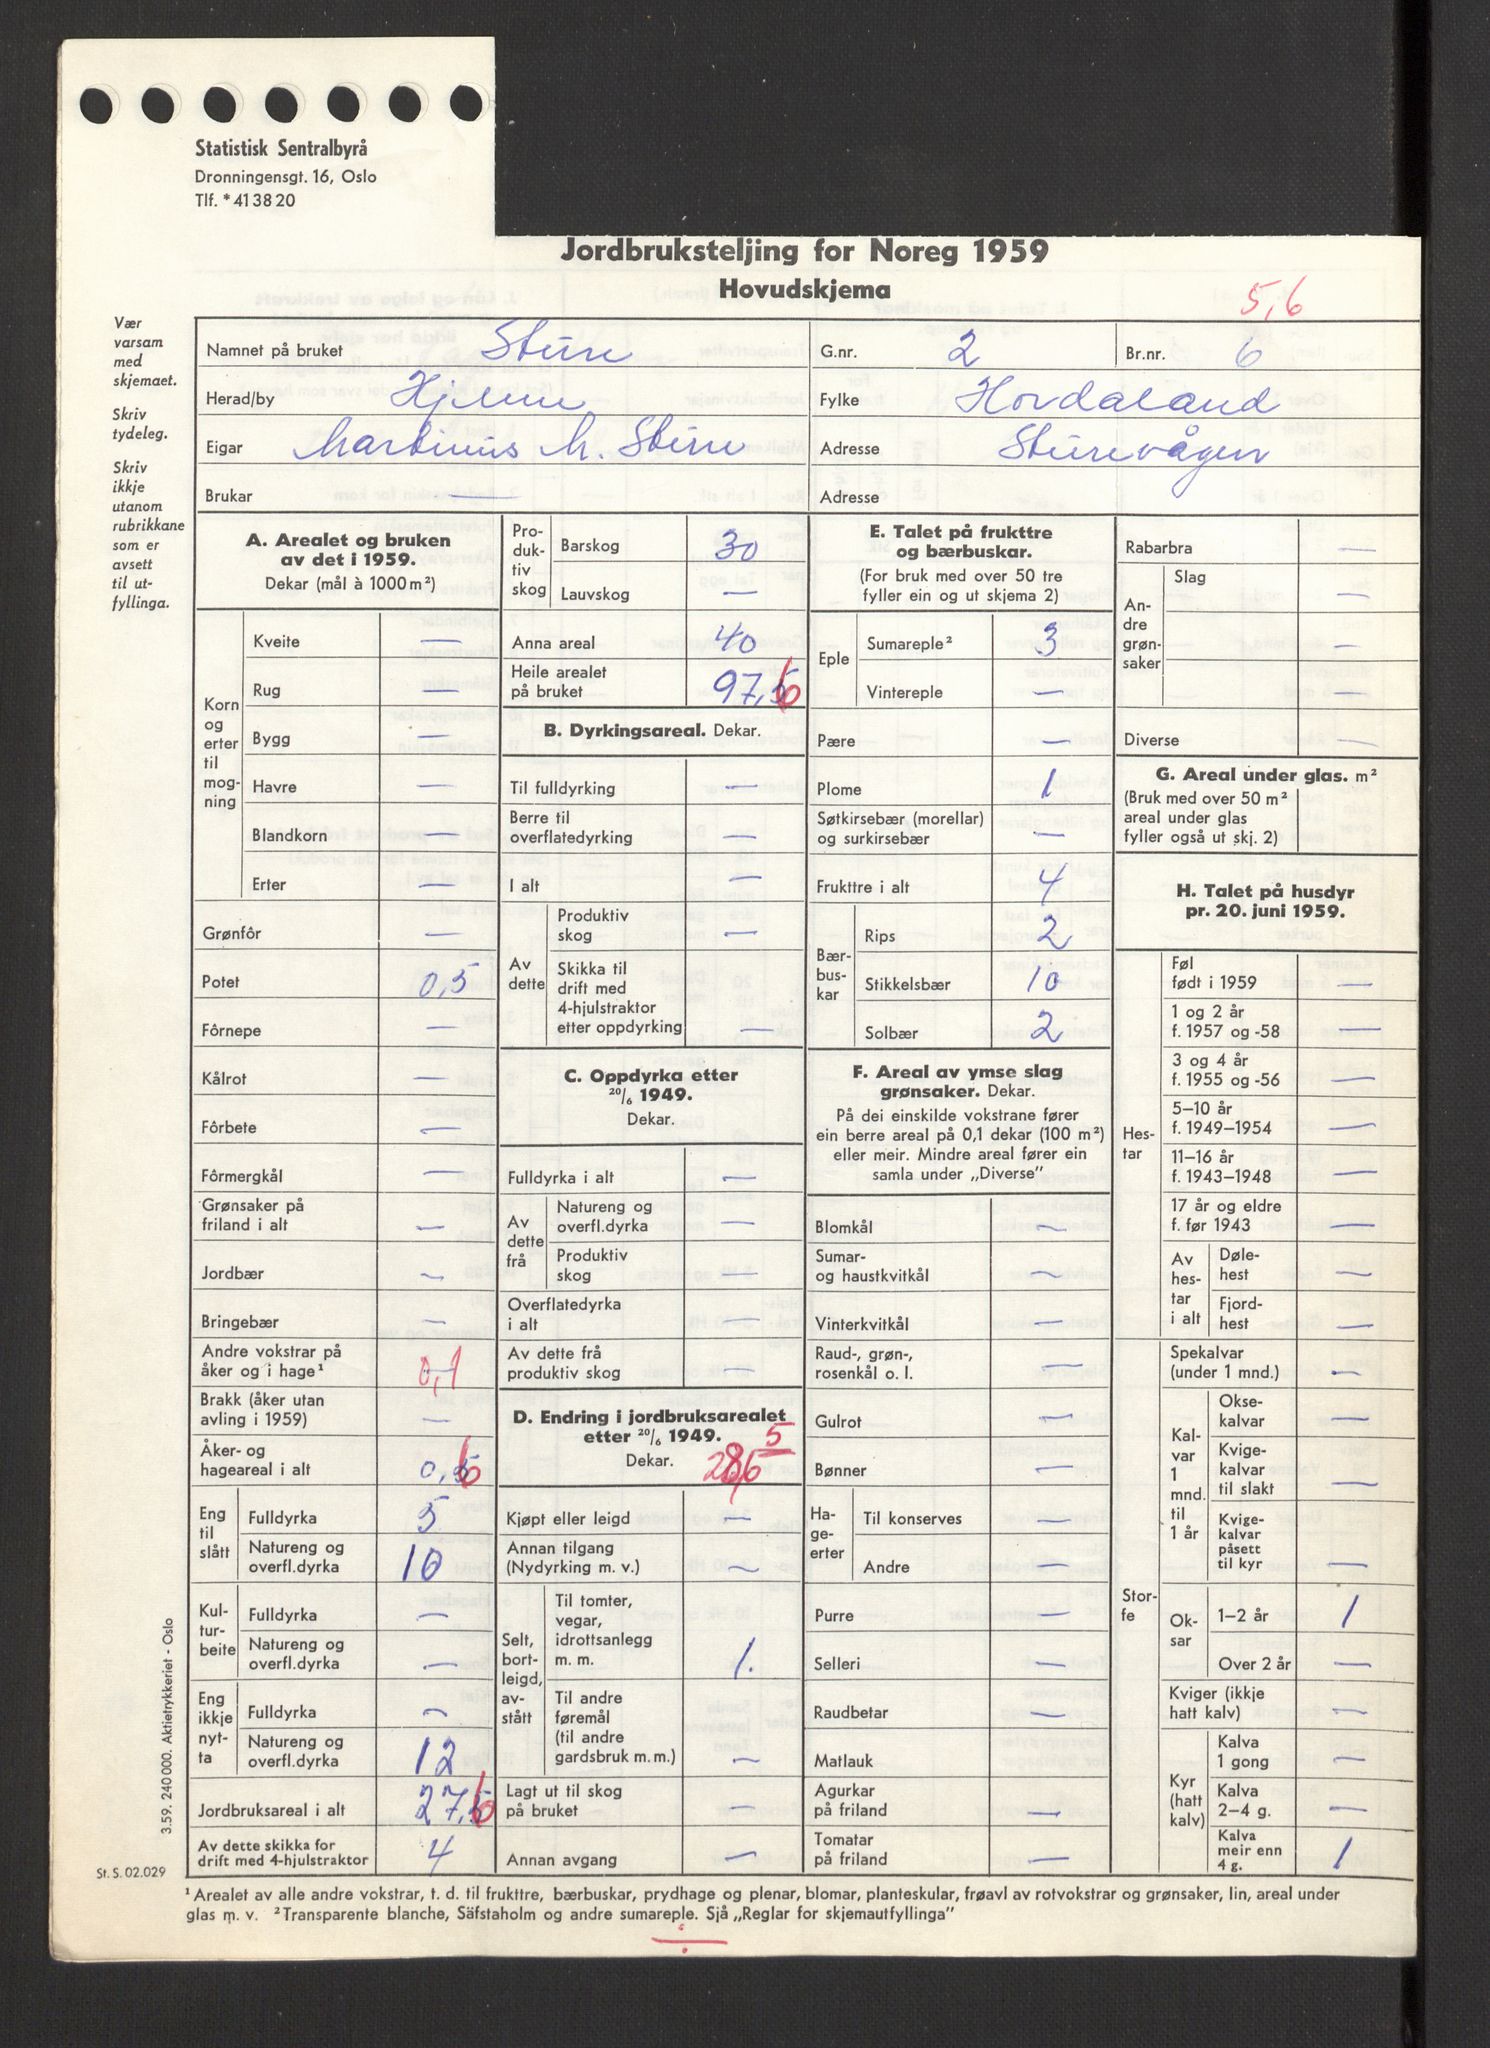 Statistisk Sentralbyrå
Dronningensgt. 16, Oslo
Tlf. * 41 38 20
Jordbruksteljing for Noreg 1959
Hovudskjema
5,6
Vær
varsam
med
skjemaet.
Skriv
tydeleg.
Skriv
ikkje
utanom
rubrikkane
som er
avsett
til ut-
fyllinga.
Namnet på bruket Sture G.nr. 2 Br.nr. 6
Herad/by Hjelme Fylke Hordaland
Eigar Martinus M. Sture Adresse Sturevågen
Brukar — Adresse
A. Arealet og bruken
av det i 1959.
Dekar (mål à 1000 m²)
Korn
og
erter
til
mog-
ning
Kveite —
Rug —
Bygg —
Havre —
Blandkorn —
Erter —
Grønfôr —
Potet 0,5
Fôrnepe —
Kålrot —
Fôrbete —
Fôrmergkål —
Grønsaker på
friland i alt —
Jordbær —
Bringebær —
Andre vokstrar på
åker og i hage¹ 0,1
Brakk (åker utan
avling i 1959) —
Åker- og
hageareal i alt 0,6
Eng
til
slått
Fulldyrka 5
Natureng og
overfl.dyrka 10
Kul-
tur-
beite
Fulldyrka —
Natureng og
overfl.dyrka —
Eng
ikkje
nyt-
ta
Fulldyrka —
Natureng og
overfl.dyrka 12
Jordbruksareal i alt 27,6
Av dette skikka for
drift med 4-hjulstraktor 4
Pro-
duk-
tiv
skog
Barskog 30
Lauvskog —
Anna areal 40
Heile arealet
på bruket 97,6
B. Dyrkingsareal. Dekar.
Til fulldyrking —
Berre til
overflatedyrking —
I alt —
Av
dette
Produktiv
skog —
Skikka til
drift med
4-hjulstraktor
etter oppdyrking —
C. Oppdyrka etter
20/6 1949.
Dekar.
Fulldyrka i alt —
Av
dette
frå
Natureng og
overfl.dyrka —
Produktiv
skog —
Overflatedyrka
i alt —
Av dette frå
produktiv skog —
D. Endring i jordbruksarealet
etter 20/6 1949.
Dekar. 28,6 5
Kjøpt eller leigd —
Annan tilgang
(Nydyrking m. v.) —
Selt,
bort-
leigd,
av-
stått
Til tomter,
vegar,
idrottsanlegg
m. m. 1.
Til andre
føremål
(til andre
gardsbruk m. m.) —
Lagt ut til skog
på bruket —
Annan avgang —
E. Talet på frukttre
og bærbuskar.
(For bruk med over 50 tre
fyller ein og ut skjema 2)
Eple
Sumareple² 3
Vintereple —
Pære —
Plome 1
Søtkirsebær (morellar)
og surkirsebær —
Frukttre i alt 4
Bær-
bus-
kar
Rips 2
Stikkelsbær 10
Solbær 2
F. Areal av ymse slag
grønsaker. Dekar.
På dei einskilde vokstrane fører
ein berre areal på 0,1 dekar (100 m²)
eller meir. Mindre areal fører ein
samla under „Diverse”
Blomkål —
Sumar-
og haustkvitkål —
Vinterkvitkål —
Raud-, grøn-,
rosenkål o. l. —
Gulrot —
Bønner —
Ha-
ge-
erter
Til konserves —
Andre —
Purre —
Selleri —
Raudbetar —
Matlauk —
Agurkar
på friland —
Tomatar
på friland —
Rabarbra —
An-
dre
grøn-
saker
Slag
—
—
—
Diverse —
G. Areal under glas. m²
(Bruk med over 50 m²
areal under glas
fyller også ut skj. 2) —
H. Talet på husdyr
pr. 20. juni 1959.
Hes-
tar
Føl
født i 1959 —
1 og 2 år
f. 1957 og -58 —
3 og 4 år
f. 1955 og -56 —
5–10 år
f. 1949–1954 —
11–16 år
f. 1943–1948 —
17 år og eldre
f. før 1943 —
Av
hes-
tar
i alt
Døle-
hest —
Fjord-
hest —
Stor-
fe
Spekalvar
(under 1 mnd.) —
Kal-
var
1
mnd.
til
1 år
Okse-
kalvar —
Kvige-
kalvar
til slakt —
Kvige-
kalvar
påsett
til kyr —
Ok-
sar
1–2 år 1
Over 2 år —
Kviger (ikkje
hatt kalv) —
Kyr
(hatt
kalv)
Kalva
1 gong —
Kalva
2–4 g. —
Kalva
meir enn
4 g. 1
3.59. 240 000. Aktietrykkeriet - Oslo
St. S. 02.029
¹ Arealet av alle andre vokstrar, t. d. til frukttre, bærbuskar, prydhage og plenar, blomar, planteskular, frøavl av rotvokstrar og grønsaker, lin, areal under
glas m. v. ² Transparente blanche, Säfstaholm og andre sumareple. Sjå „Reglar for skjemautfyllinga”